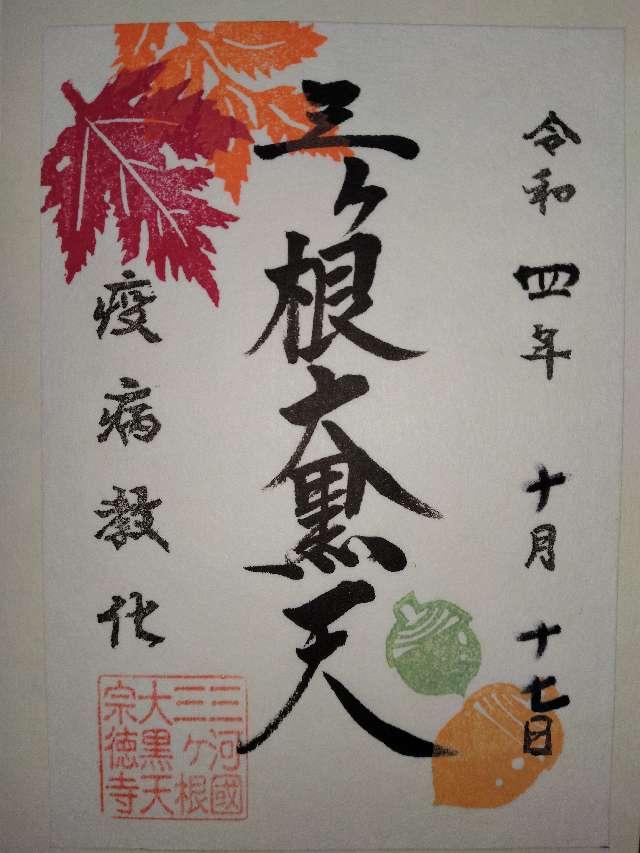 令和四年十月十七日
三ヶ根大黒天
疫病教化
三河國
三ヶ根
大黒天
宗徳寺